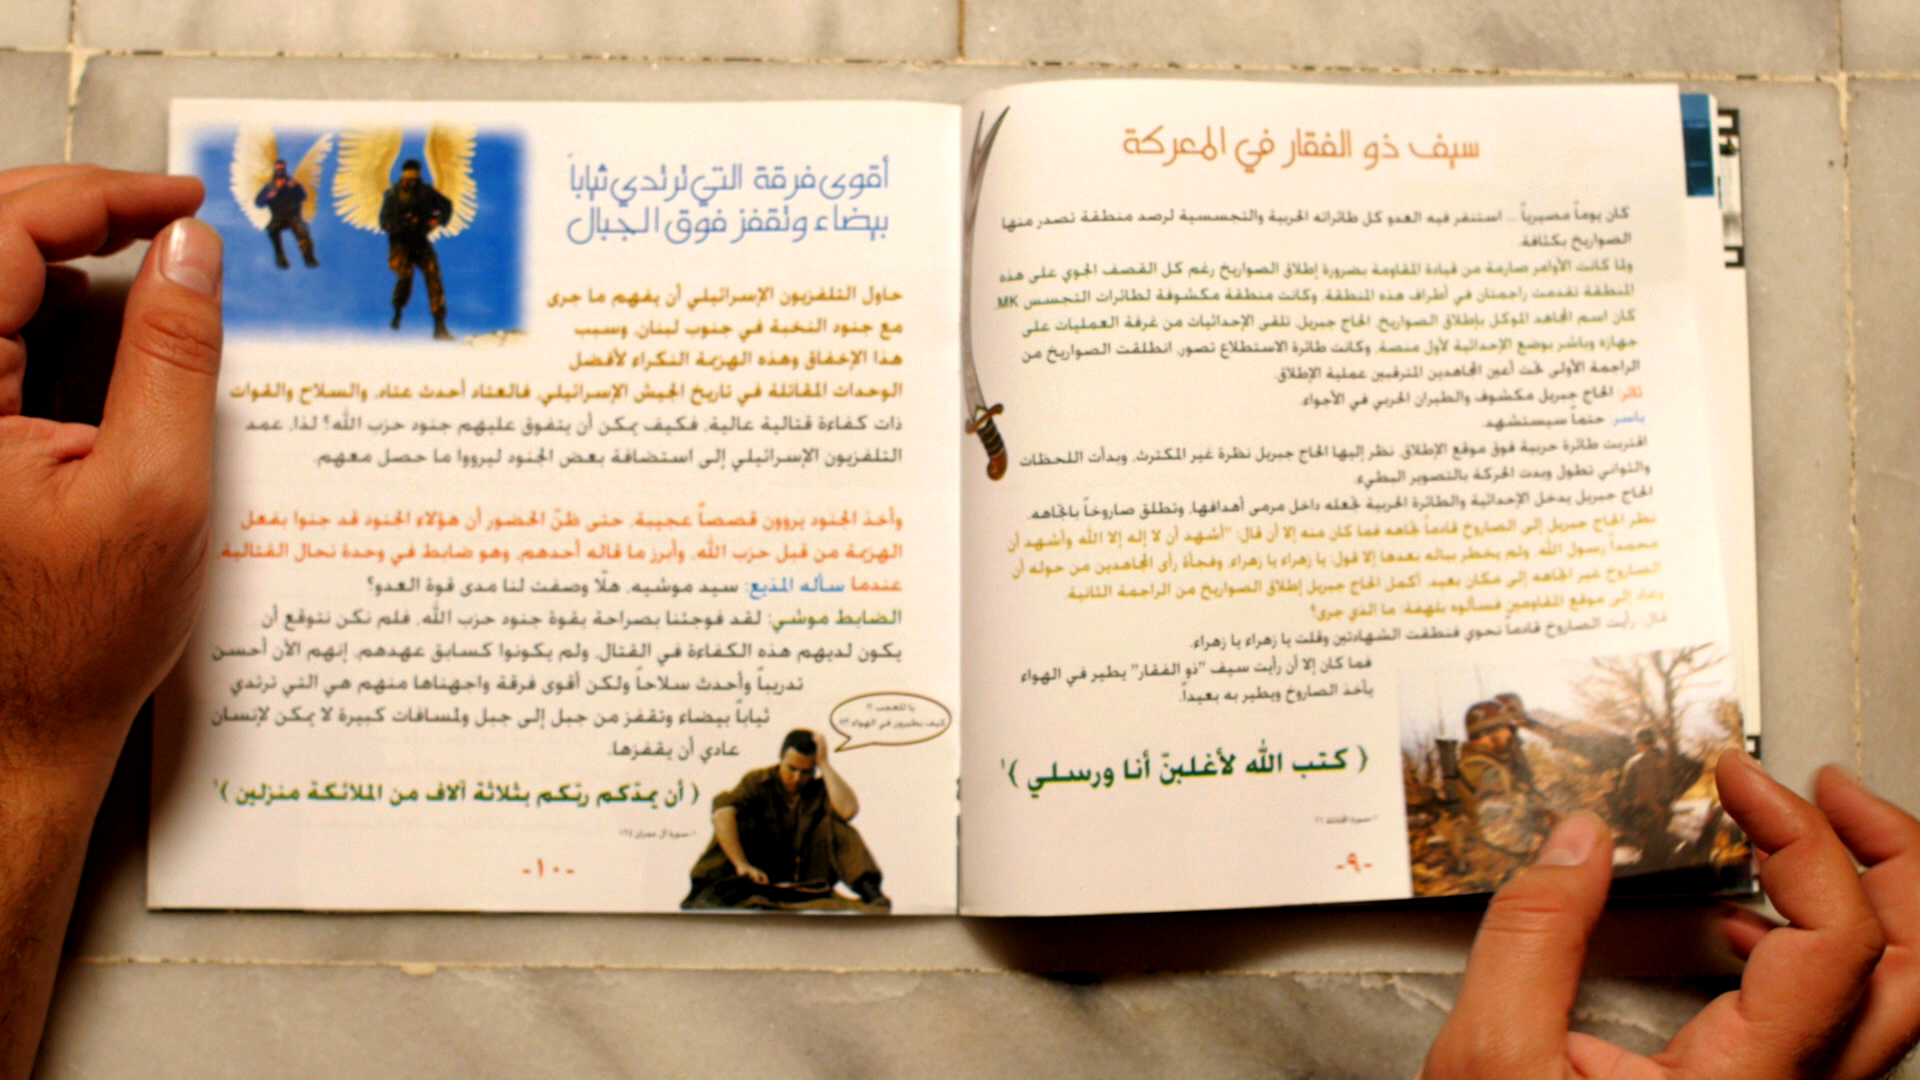 سيف ذو الفقار في المعركة
كان يوماً مصيرياً ... استنفر فيه العدو كل طائراته الحربية والتجسسية لرصد منطقة تصدر منها
الصواريخ بكثافة.
ولما كانت الأوامر صارمة من قيادة المقاومة بضرورة إطلاق الصواريخ رغم كل القصف الجوي على هذه
المنطقة تقدمت راجمتان في أطراف هذه المنطقة، وكانت منطقة مكشوفة لطائرات التجسس MK.
كان اسم المجاهد الموكل بإطلاق الصواريخ، الحاج جبريل، تلقى الإحداثيات من غرفة العمليات على
جهازه وباشر بوضع الإحداثية لأول منصة، وكانت طائرة الاستطلاع تصور، انطلقت الصواريخ من
الراجمة الأولى تحت أعين المجاهدين المترقبين عملية الإطلاق.
ثائر: الحاج جبريل مكشوف والطيران الحربي في الأجواء.
ياسر: حتماً سيستشهد.
اقتربت طائرة حربية فوق موقع الإطلاق، نظر إليها الحاج جبريل نظرة غير المكترث، وبدأت اللحظات
والثواني تطول وبدت الحركة بالتصوير البطيء.
الحاج جبريل يدخل الإحداثية والطائرة الحربية تجعله داخل مرمى أهدافها، وتطلق صاروخاً باتجاهه.
نظر الحاج جبريل إلى الصاروخ قادماً تجاهه فما كان منه إلا أن قال: "أشهد أن لا إله إلا الله وأشهد أن
محمداً رسول الله. ولم يخطر بباله بعدها إلا قول: يا زهراء يا زهراء. وفجأة رأى المجاهدين من حوله أن
الصاروخ غير اتجاهه إلى مكان بعيد. أكمل الحاج جبريل إطلاق الصواريخ من الراجمة الثانية.
وعاد إلى موقع المقاومين فسألوه بلهفة: ما الذي جرى؟
قال: رأيت الصاروخ قادماً نحوي فنطقت الشهادتين وقلت يا زهراء يا زهراء.
فما كان إلا أن رأيت سيف "ذو الفقار" يطير في الهواء
يأخذ الصاروخ ويطير به بعيداً.
﴿ كتب الله لأغلبنّ أنا ورسلي ﴾¹
-٩-
أقوى فرقة التي ترتدي ثياباً
بيضاء وتقفز فوق الجبال
حاول التلفزيون الإسرائيلي أن يفهم ما جرى
مع جنود النخبة في جنوب لبنان، وسبب
هذا الإخفاق وهذه الهزيمة النكراء لأفضل
الوحدات المقاتلة في تاريخ الجيش الإسرائيلي، فالعتاد أحدث عتاد، والسلاح والقوات
ذات كفاءة قتالية عالية، فكيف يمكن أن يتفوق عليهم جنود حزب الله؟ لذا، عمد
التلفزيون الإسرائيلي إلى استضافة بعض الجنود ليرووا ما حصل معهم.
وأخذ الجنود يروون قصصاً عجيبة، حتى ظنّ الحضور أن هؤلاء الجنود قد جنوا بفعل
الهزيمة من قبل حزب الله، وأبرز ما قاله أحدهم، وهو ضابط في وحدة نحال القتالية
عندما سأله المذيع: سيد موشيه، هلّا وصفت لنا مدى قوة العدو؟
الضابط موشي: لقد فوجئنا بصراحة بقوة جنود حزب الله، فلم نكن نتوقع أن
يكون لديهم هذه الكفاءة في القتال، ولم يكونوا كسابق عهدهم، إنهم الآن أحسن
تدريباً وأحدث سلاحاً ولكن أقوى فرقة واجهناها منهم هي التي ترتدي
ثياباً بيضاء وتقفز من جبل إلى جبل ولمسافات كبيرة لا يمكن لإنسان
عادي أن يقفزها.
يا للعجب !!
كيف يطيرون في الهواء ؟!
﴿ أن يمدّكم ربّكم بثلاثة آلاف من الملائكة منزلين ﴾¹
١- سورة آل عمران
-١٠-